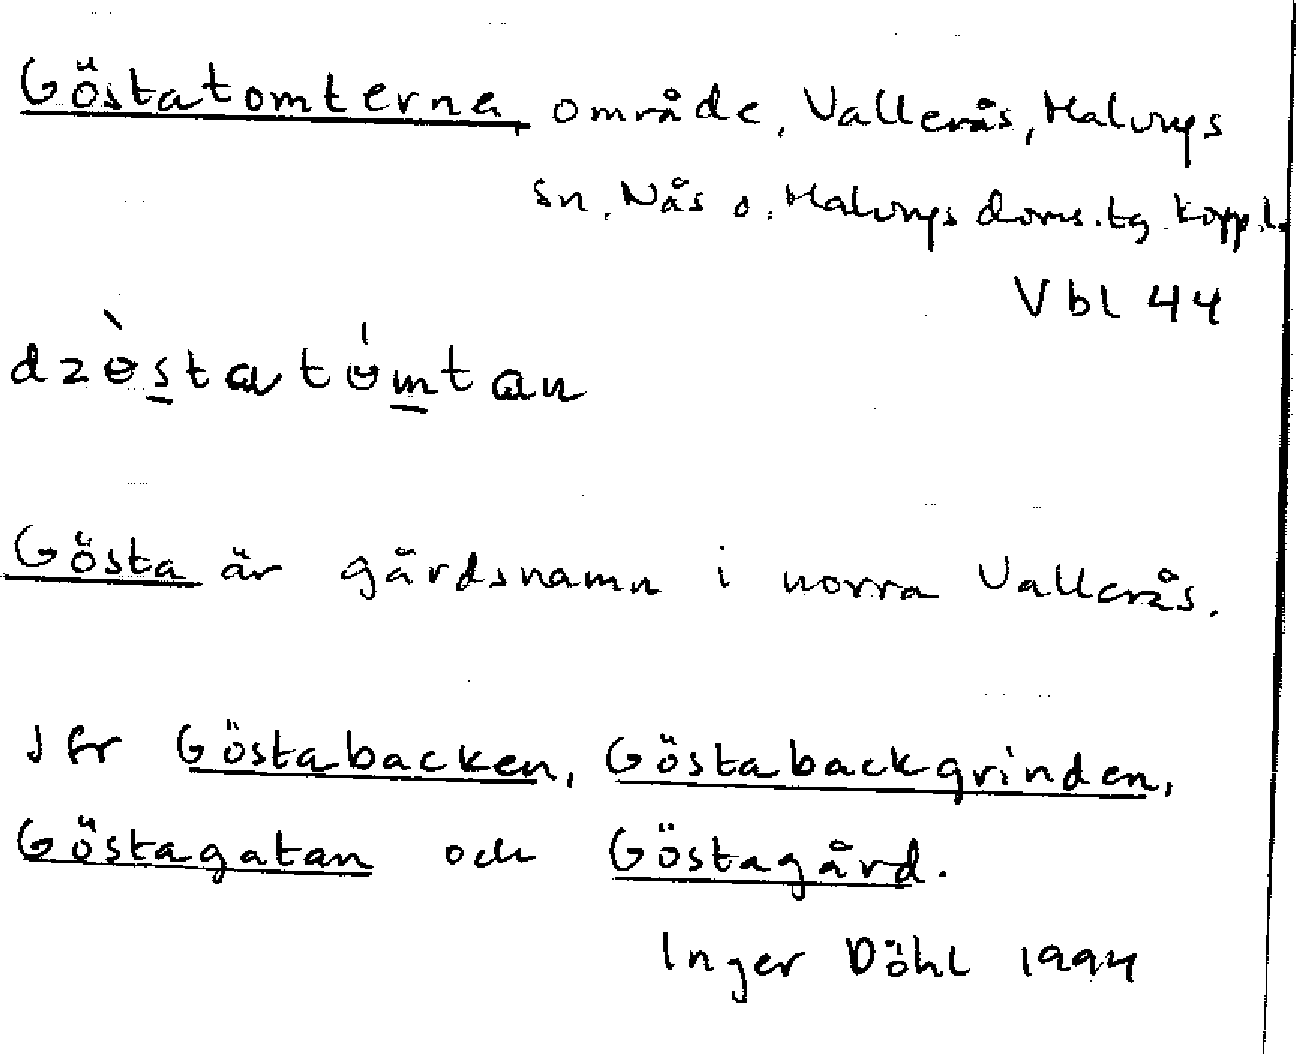 Göstatomterna, område, Vallerås, Malungs
sn. Nås o. Malungs doms. tg. Kopp. l.
Vbl 44
dzɵ̀statɵ́mtan
Gösta är gårdsnamn i norra Vallerås.
Jfr Göstabacken, Göstabackgrinden,
Göstagatan och Göstagård.
Inger Döhl 1994